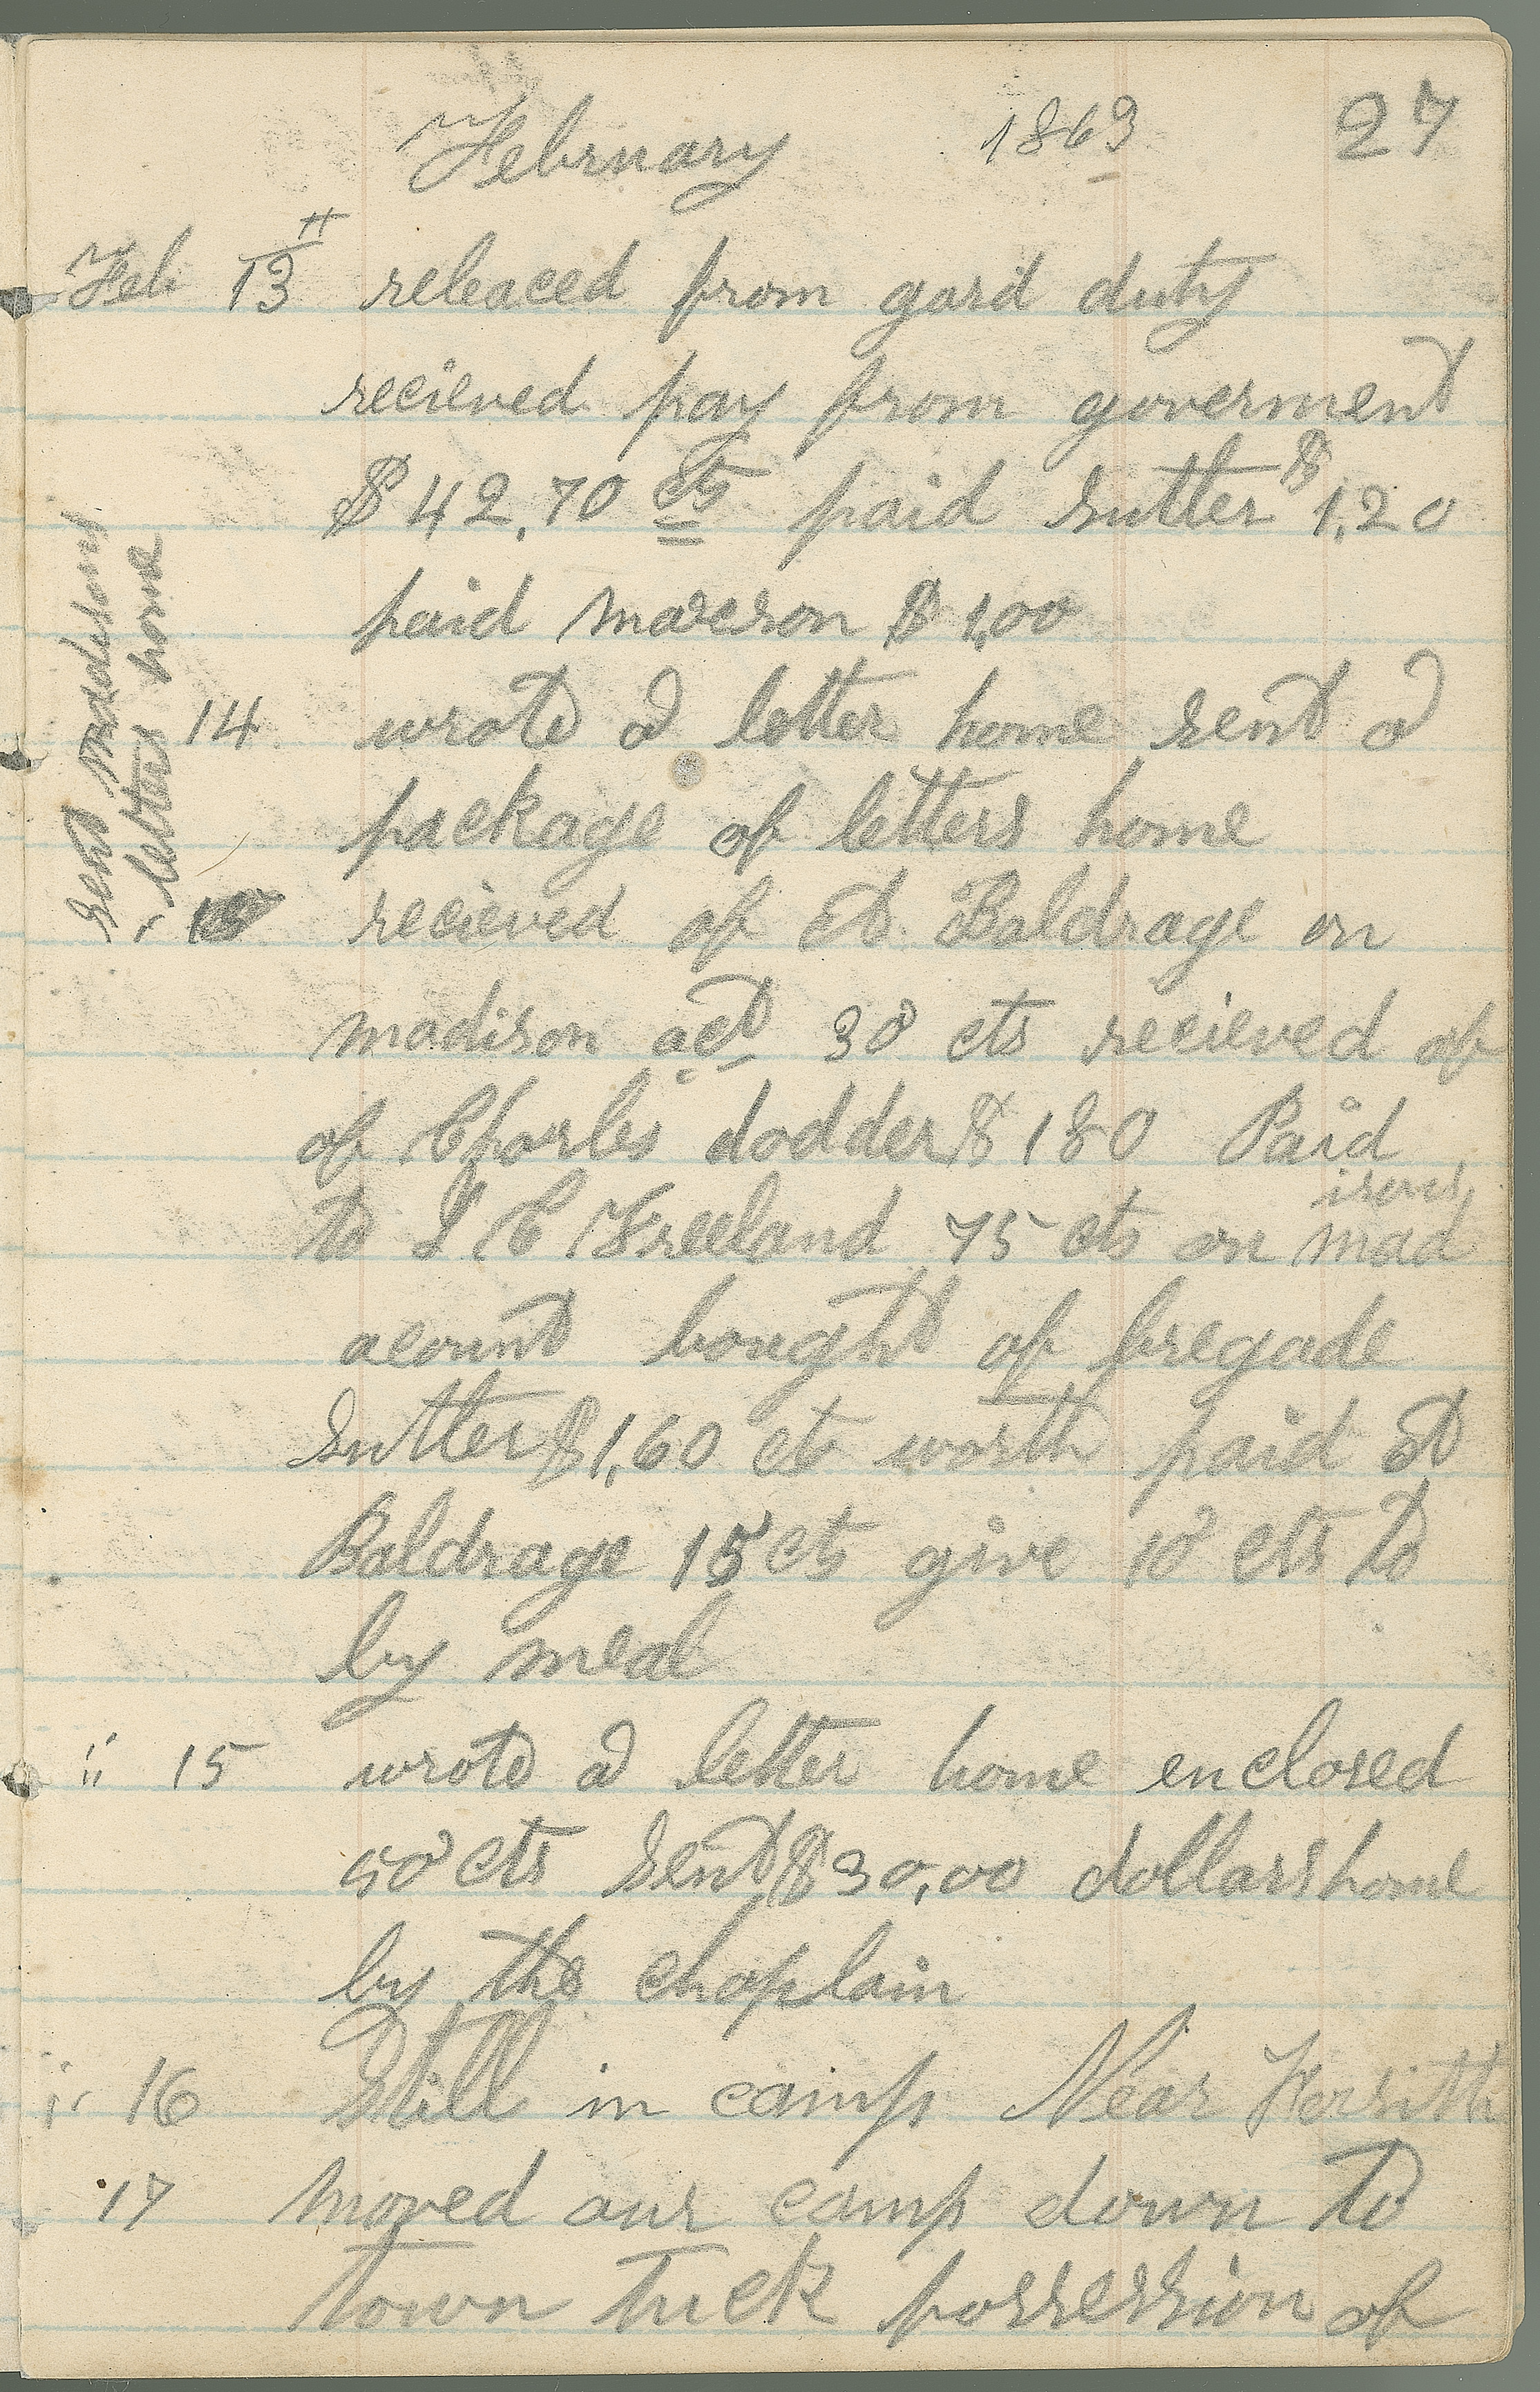 February 1863 27
Feb 13th releaced from gard duty
recieved pay from goverment
$42,70 cts paid Sutler $1,20
paid $1,00
14 wrote a letter home sent a
package of letters home
recieved of Baldrage on
madison act 30 cts recieved of
of Charles dodder $180 Paid
to S C Freeland 75 cts on mad
isons
acount bought of bregade
Sutler $1,60 cts worth paid
Baldrage 15 cts give 10 cts to
by meal
" 15 wrote a letter home enclosed
50 cts Sent $30,00 dollars home
by the chaplain
" 16 Still in camp Near
17 moved our camp down to
town tuck possession of
Sent madisons
letter home